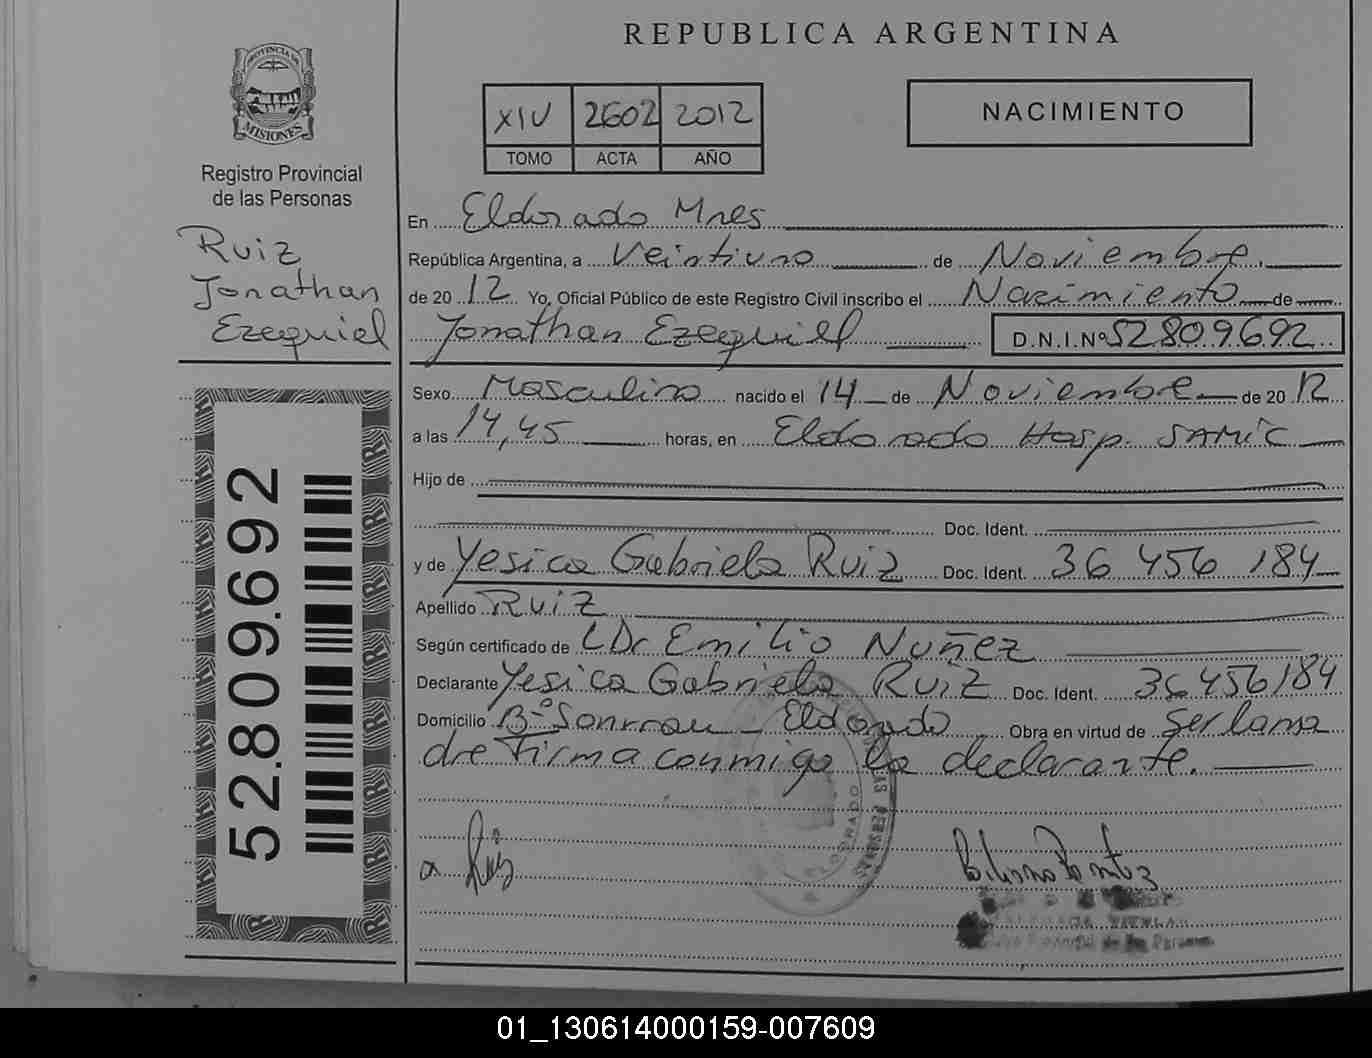 REPUBLICA ARGENTINA
PROVINCIA DE
MISIONES
Registro Provincial
de las Personas
Ruiz
Jonathan
Ezequiel
52.809.692
XIV 2602 2012
TOMO ACTA AÑO
NACIMIENTO
En Eldorado Mnes
República Argentina, a Veintiuno de Noviembre.
de 20 12 Yo, Oficial Público de este Registro Civil inscribo el Nacimiento de
Jonathan Ezequiel D.N.I.Nº 52809692
Sexo Masculino nacido el 14 de Noviembre de 20 12
a las 14,45 horas, en Eldorado Hosp. SAMIC
Hijo de
Doc. Ident.
y de Yesica Gabriela Ruiz Doc. Ident. 36 456 184
Apellido Ruiz
Según certificado de Dr Emilio Nuñez
Declarante Yesica Gabriela Ruiz Doc. Ident. 36 456 184
Domicilio Bº Eldorado Obra en virtud de Ser la ma
dre Firma conmigo la declarante.
Ruiz
01_130614000159-007609